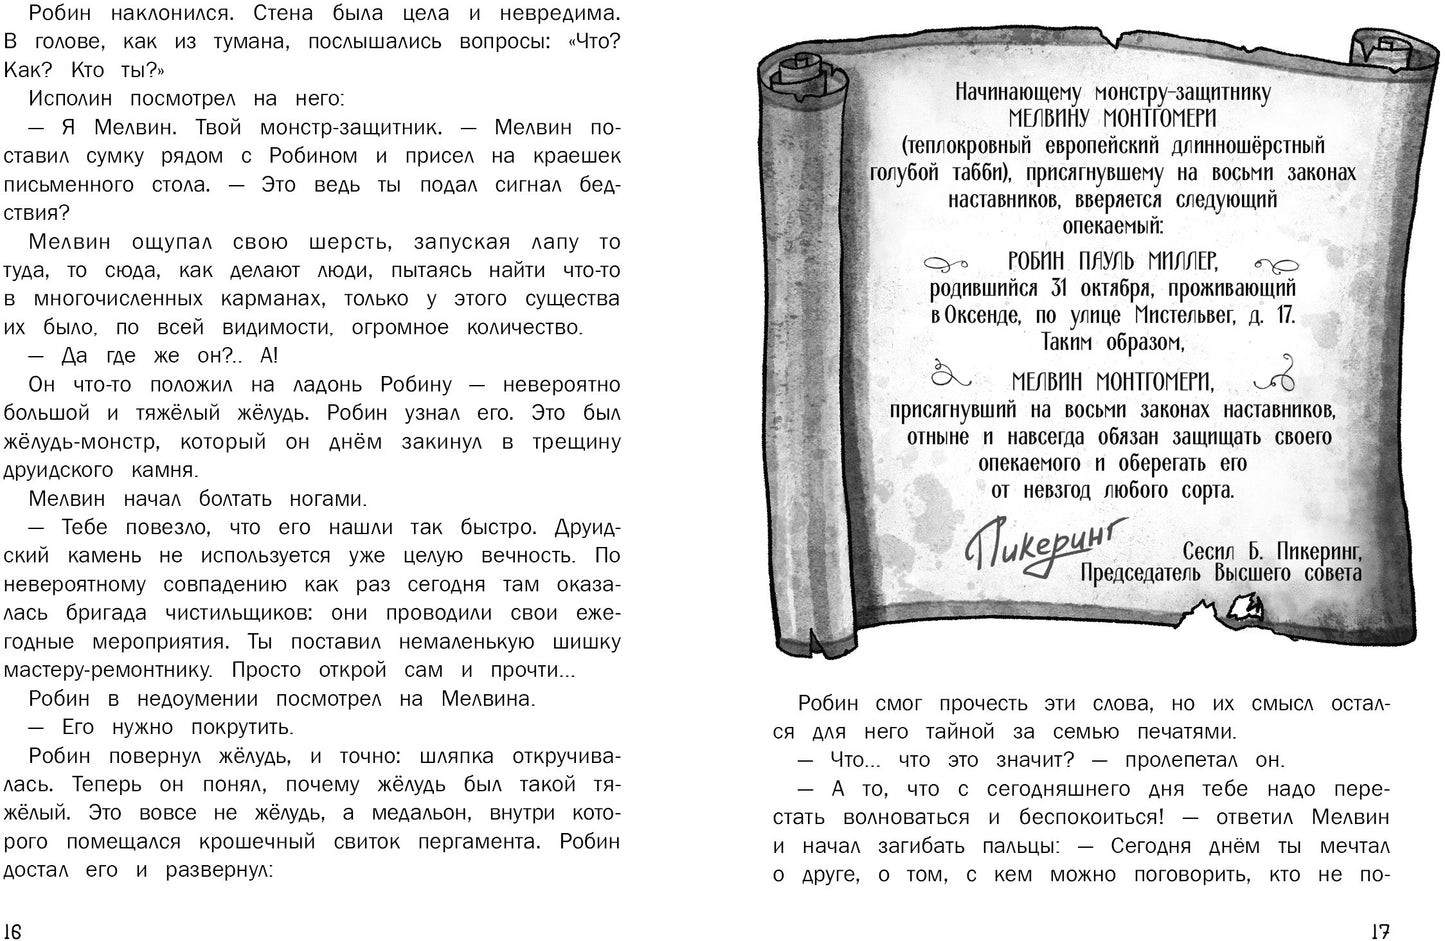 Робин наклонился. Стена была цела и невредима.
В голове, как из тумана, послышались вопросы: «Что?
Как? Кто ты?»
Исполин посмотрел на него:
— Я Мелвин. Твой монстр-защитник. — Мелвин по-
ставил сумку рядом с Робином и присел на краешек
письменного стола. — Это ведь ты подал сигнал бед-
ствия?
Мелвин ощупал свою шерсть, запуская лапу то
туда, то сюда, как делают люди, пытаясь найти что-то
в многочисленных карманах, только у этого существа
их было, по всей видимости, огромное количество.
— Да где же он?.. А!
Он что-то положил на ладонь Робину — невероятно
большой и тяжёлый жёлудь. Робин узнал его. Это был
жёлудь-монстр, который он днём закинул в трещину
друидского камня.
Мелвин начал болтать ногами.
— Тебе повезло, что его нашли так быстро. Друид-
ский камень не используется уже целую вечность. По
невероятному совпадению как раз сегодня там оказа-
лась бригада чистильщиков: они проводили свои еже-
годные мероприятия. Ты поставил немаленькую шишку
мастеру-ремонтнику. Просто открой сам и прочти...
Робин в недоумении посмотрел на Мелвина.
— Его нужно покрутить.
Робин повернул жёлудь, и точно: шляпка откручива-
лась. Теперь он понял, почему жёлудь был такой тя-
жёлый. Это вовсе не жёлудь, а медальон, внутри кото-
рого помещался крошечный свиток пергамента. Робин
достал его и развернул:
16
Начинающему монстру-защитнику
МЕЛВИНУ МОНТГОМЕРИ
(теплокровный европейский длинношёрстный
голубой табби), присягнувшему на восьми законах
наставников, вверяется следующий
опекаемый:
РОБИН ПАУЛЬ МИЛЛЕР,
родившийся 31 октября, проживающий
в Оксенде, по улице Мистельвег, д. 17.
Таким образом,
МЕЛВИН МОНТГОМЕРИ,
присягнувший на восьми законах наставников,
отныне и навсегда обязан защищать своего
опекаемого и оберегать его
от невзгод любого сорта.
Пикеринг
Сесил Б. Пикеринг,
Председатель Высшего совета
Робин смог прочесть эти слова, но их смысл остал-
ся для него тайной за семью печатями.
— Что... что это значит? — пролепетал он.
— А то, что с сегодняшнего дня тебе надо пере-
стать волноваться и беспокоиться! — ответил Мелвин
и начал загибать пальцы: — Сегодня днём ты мечтал
о друге, о том, с кем можно поговорить, кто не по-
17